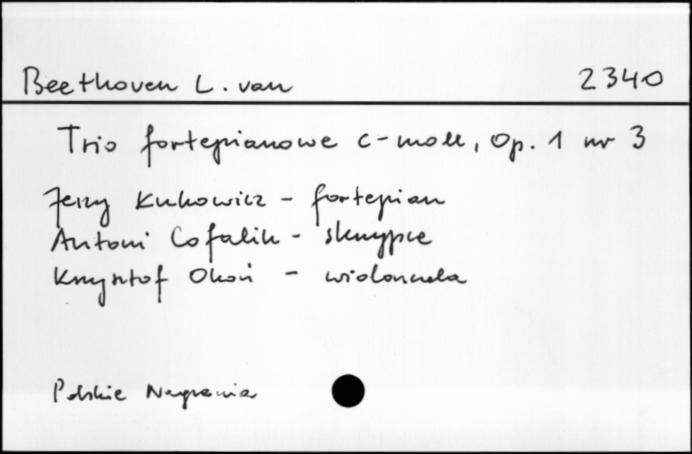 Beethoven L. van 2340
Trio fortepianowe c-moll, Op. 1 nr 3
Jerzy Kukowicz - fortepian
Antoni Cofalik - skrzypce
Krzysztof Okoń - wiolonczela
Polskie Nagrania